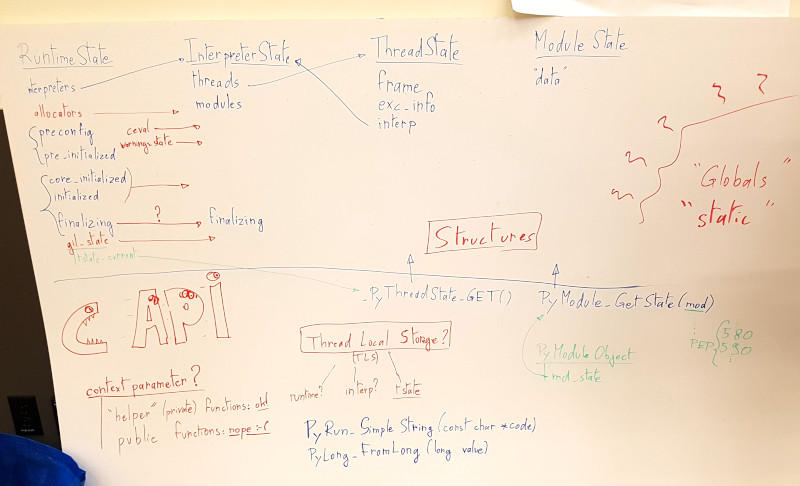 RuntimeState
interpreters
allocators
preconfig
pre_initialized
ceval
warnings_state
core_initialized
initialized
finalizing
?
finalizing
gil_state
tstate_current
InterpreterState
threads
modules
ThreadState
frame
exc_info
interp
Module State
"data"
"Globals"
"static"
Structures
_PyThreadState_GET()
PyModule_GetState(mod)
PyModuleObject
+md_state
PEP
580
590
C API
Thread Local Storage?
(TLS)
runtime?
interp?
tstate
context parameter?
"helper" (private) functions: ok!
public functions: nope :-(
PyRun_SimpleString(const char *code)
PyLong_FromLong(long value)